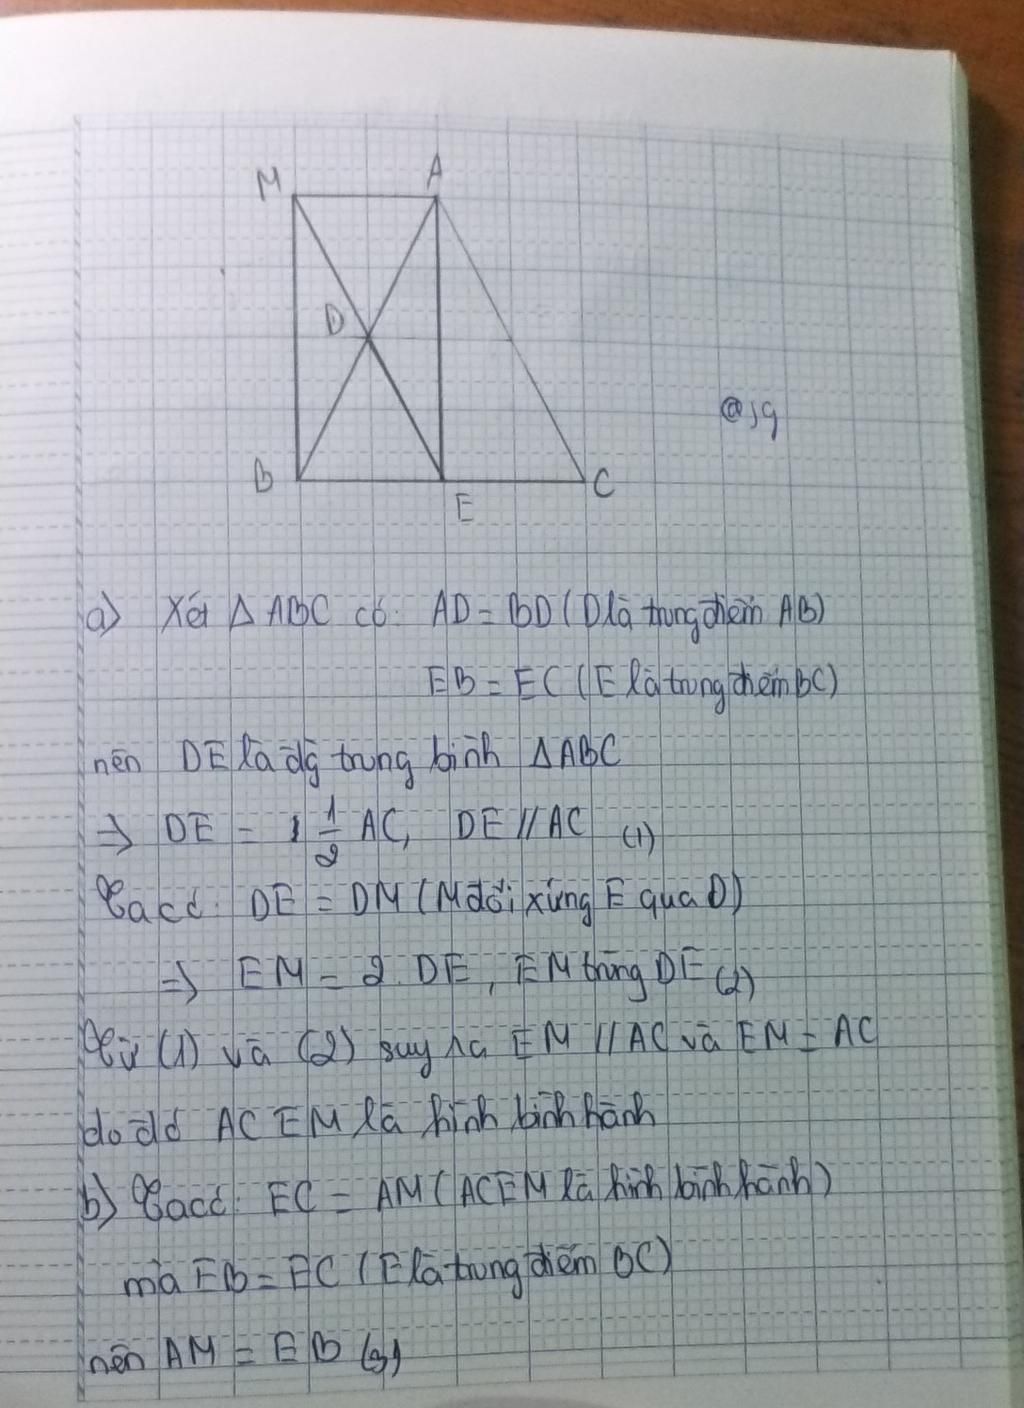 M A
D
@jq
B E C
a) Xét Δ ABC có: AD = BD (D là trung điểm AB)
EB = EC (E là trung điểm BC)
nên DE là đg trung bình ΔABC
=> DE = 1/2 AC, DE // AC (1)
Ta có: DE = DM (M đối xứng E qua D)
=> EM = 2. DE, EM trùng DE (2)
Từ (1) và (2) suy ra EM // AC và EM = AC
do đó ACEM là hình bình hành
b) Ta có: EC = AM (ACEM là hình bình hành)
mà EB = EC (E là trung điểm BC)
nên AM = EB (3)